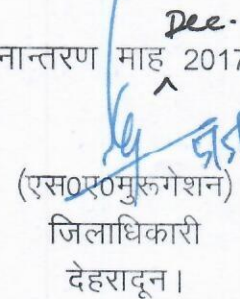 Dee.
नान्तरण माह ^ 2017
(एस0ए0मुरूगेशन)
जिलाधिकारी
देहरादून।